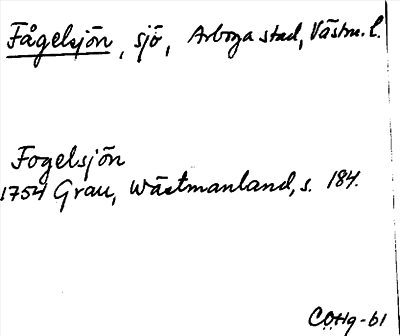 Fågelsjön, sjö, Arboga stad, Västm. l.
Fogelsjön
1754 Grau, Wästmanland, s. 184.